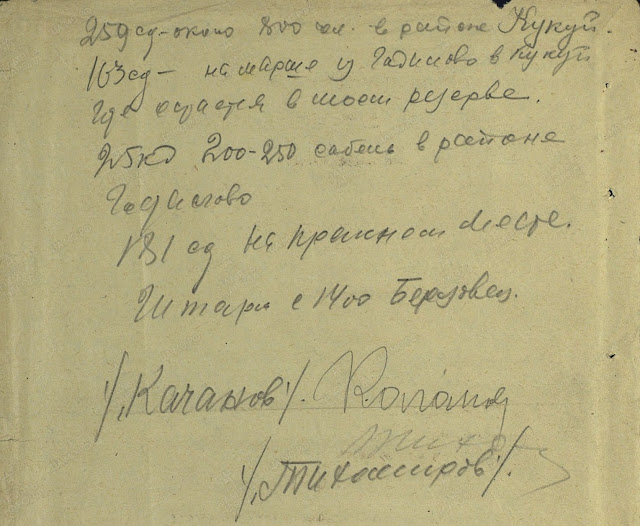 259 сд - около 800 чел. в районе Кукуй.
163 сд - на марше из в Кукуй
где остается в моем резерве.
25 кд 200-250 сабель в районе
181 сд на прежнем месте.
Штарм с 1400 Березовец.
/Качанов/. Качанов
/Тихомиров/.